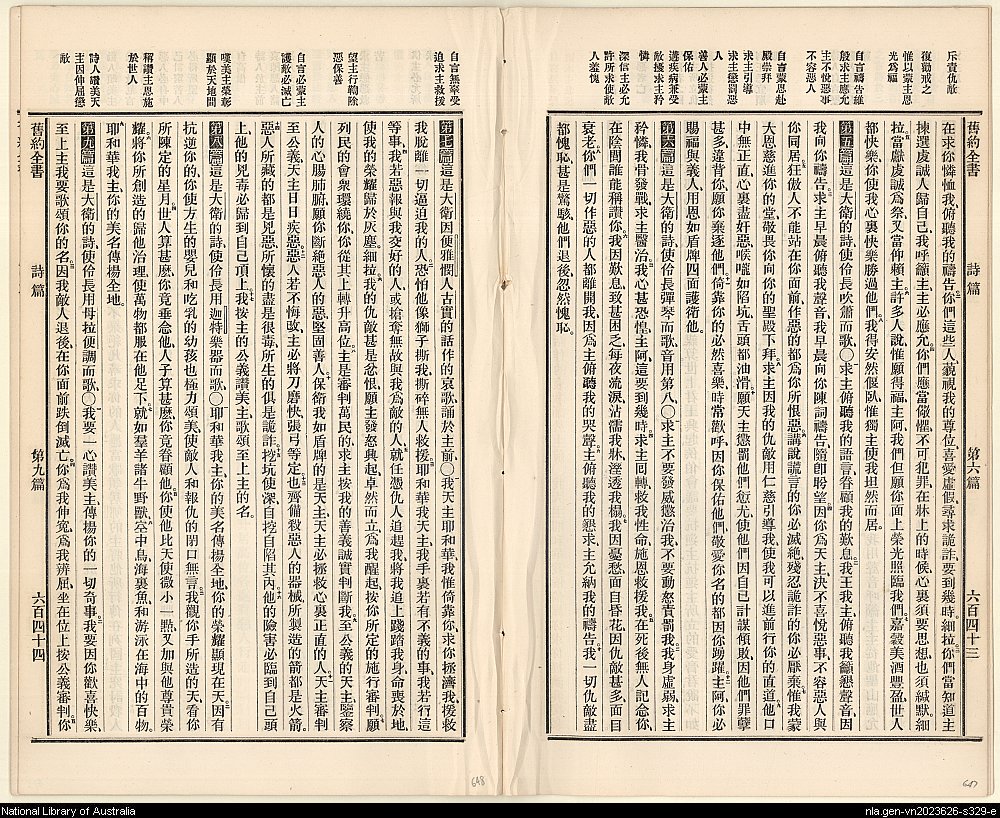 斥責仇敵
復勸戒之
惟以蒙主恩
光爲福
自言禱告維
殷求主應允
主不悅惡事
不容惡人
自言蒙恩赴
殿崇拜
求主引導
求主懲罰惡
人
善人必蒙主
保佑
遘疾病兼受
敵擾求主矜
憐
深信主必允
許所求使敵
人羞愧
舊約全書
詩篇
第六篇
六百四十三
在求你憐恤我俯聽我的禱告你們這些人藐視我的尊位喜愛虛假尋求詭詐要到幾時細拉你們當知道主
揀選虔誠人歸自己我呼籲主主必應允你們應當儆懼不可犯罪在牀上的時候心裏須要思想也須緘默細
拉當獻虔誠爲祭又當仰賴主許多人說惟願得福主阿我們但願你面上榮光照臨我們嘉穀美酒豐盈世人
都快樂你使我心裏快樂勝過他們我得安然偃臥惟獨主使我坦然而居
第五篇這是大衛的詩使伶長吹簫而歌〇求主俯聽我的語言眷顧我的歎息我王我主俯聽我籲懇聲音因
我向你禱告求主早晨俯聽我聲音我早晨向你陳詞禱告隨卽盼望因你爲天主決不喜悅惡事不容惡人與
你同居狂傲人不能站在你面前作惡的都爲你所恨惡講說謊言的你必滅絕殘忍詭詐的你必厭棄惟我蒙
大恩慈進你的堂敬畏你向你的聖殿下拜求主因我的仇敵用仁慈引導我使我可以進前行你的直道他口
中無正直心裏盡奸惡喉嚨如陷坑舌頭都油滑願天主懲罰他們愆尤使他們因自已計謀傾敗因他們罪孽
甚多違背你願你棄逐他們倚靠你的必然喜樂時常歡呼因你保佑他們敬愛你名的都因你踴躍主阿你必
賜福與義人用恩如盾牌四面護衛他
第六篇這是大衛的詩使伶長彈琴而歌音用第八〇求主不要發威懲治我不要動怒責罰我我身虛弱求主
矜憐我骨發戰求主醫治我心甚恐惶主阿這要到幾時求主囘轉救我性命施恩救援我在死後無人記念你
在陰間誰能稱讚你我因歎息致甚困乏每夜流淚沾濡我牀溼透我榻我因憂愁面目昏花因仇敵甚多面目
衰老你們一切作惡的人都離開我因爲主俯聽我的哭聲主俯聽我的懇求主允納我的禱告我一切仇敵盡
都愧恥甚是驚駭他們退後忽然愧恥
自言無辜受
迫求主救援
望主行鞫除
惡保善
自言必蒙主
護敵必滅亡
嘆美主榮彰
顯於天地間
稱讚主恩施
於世人
詩人讚美天
主因伸屈懲
敵
第七篇這是大衛因便雅憫人古實的話作的哀歌誦於主前〇我天主耶和華我惟倚靠你求你拯濟我援救
我脫離一切逼迫我的人恐怕他像獅子撕我撕碎無人救援耶和華我天主我手裏若有不義的事我若行這
等事我若惡報與我交好的人或搶奪無故與我爲敵的人就任憑仇人追趕我將我追上踐踏我身命喪於地
使我的榮耀歸於灰塵細拉我的仇敵甚是忿恨願主發怒興起卓然而立爲我醒起按你所定的施行審判願
列民的會衆環繞你你從其上轉升高位主是審判萬民的求主按我的善義誠實判斷我至公義的天主鑒察
人的心腸肺腑願你斷絕惡人的惡堅固善人保衛我如盾牌的是天主天主必拯救心裏正直的人天主審判
至公義天主日日疾惡惡人若不悔改主必將刀磨快張弓等定也齊備殺惡人的器械所製造的箭都是火箭
惡人所藏的都是兇惡所懷的盡是很毒所生的俱是詭詐挖坑使深自挖自陷其內他的險害必臨到自己頭
上他的兇毒必歸到自己頂上我按主的公義讚美主歌頌至上主的名
第八篇這是大衛的詩使伶長用迦特樂器而歌〇耶和華我主你的美名傳揚全地你的榮耀顯現在天因有
抗逆你的你使方生的嬰兒和吃乳的幼孩也極力頌美使敵人和報仇的閉口無言我觀你手所造的天看你
所陳定的星月世人算甚麽你竟垂念他人子算甚麽你竟眷顧他你使他比天使微小一點又加與他尊貴榮
耀將你所創造的歸他治理使萬物都服在他足下就如羣羊諸牛野獸空中鳥海裏魚和游泳在海中的百物
耶和華我主你的美名傳揚全地
第九篇這是大衛的詩使伶長用母拉便調而歌〇我要一心讚美主傳揚你的一切奇事我要因你歡喜快樂
至上主我要歌頌你的名因我敵人退後在你面前跌倒滅亡你爲我伸寃爲我辨屈坐在位上按公義審判你
舊約全書
詩篇
第九篇
六百四十四
648
647
National Library of Australia
nla.gen-vn2023626-s329-e